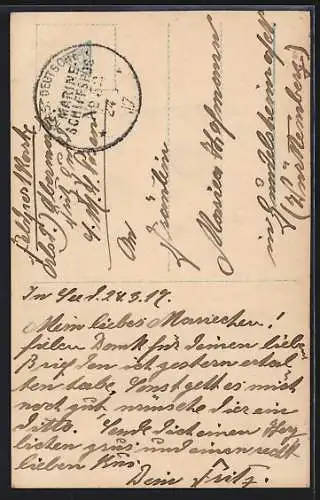 KAIS. DEUTSCHE
MARINE-
SCHIFFSPOST
24 3
17
Feldpost Marke
Abs.
S. M. S.
An
Fräulein
Mariea Hofmann
in Gundelsheim
(Württemberg)
In See d. 24.3.17.
Mein liebes Mariechen!
fielen Dank für deinen lieben
Brief den ich gestern erhal
ten habe. Sonst geht es mich
noch gut wünsche dier ein
ditto. Sende dich einen Herz
lichen grus und einen recht
lieben Kus.
Dein Fritz.